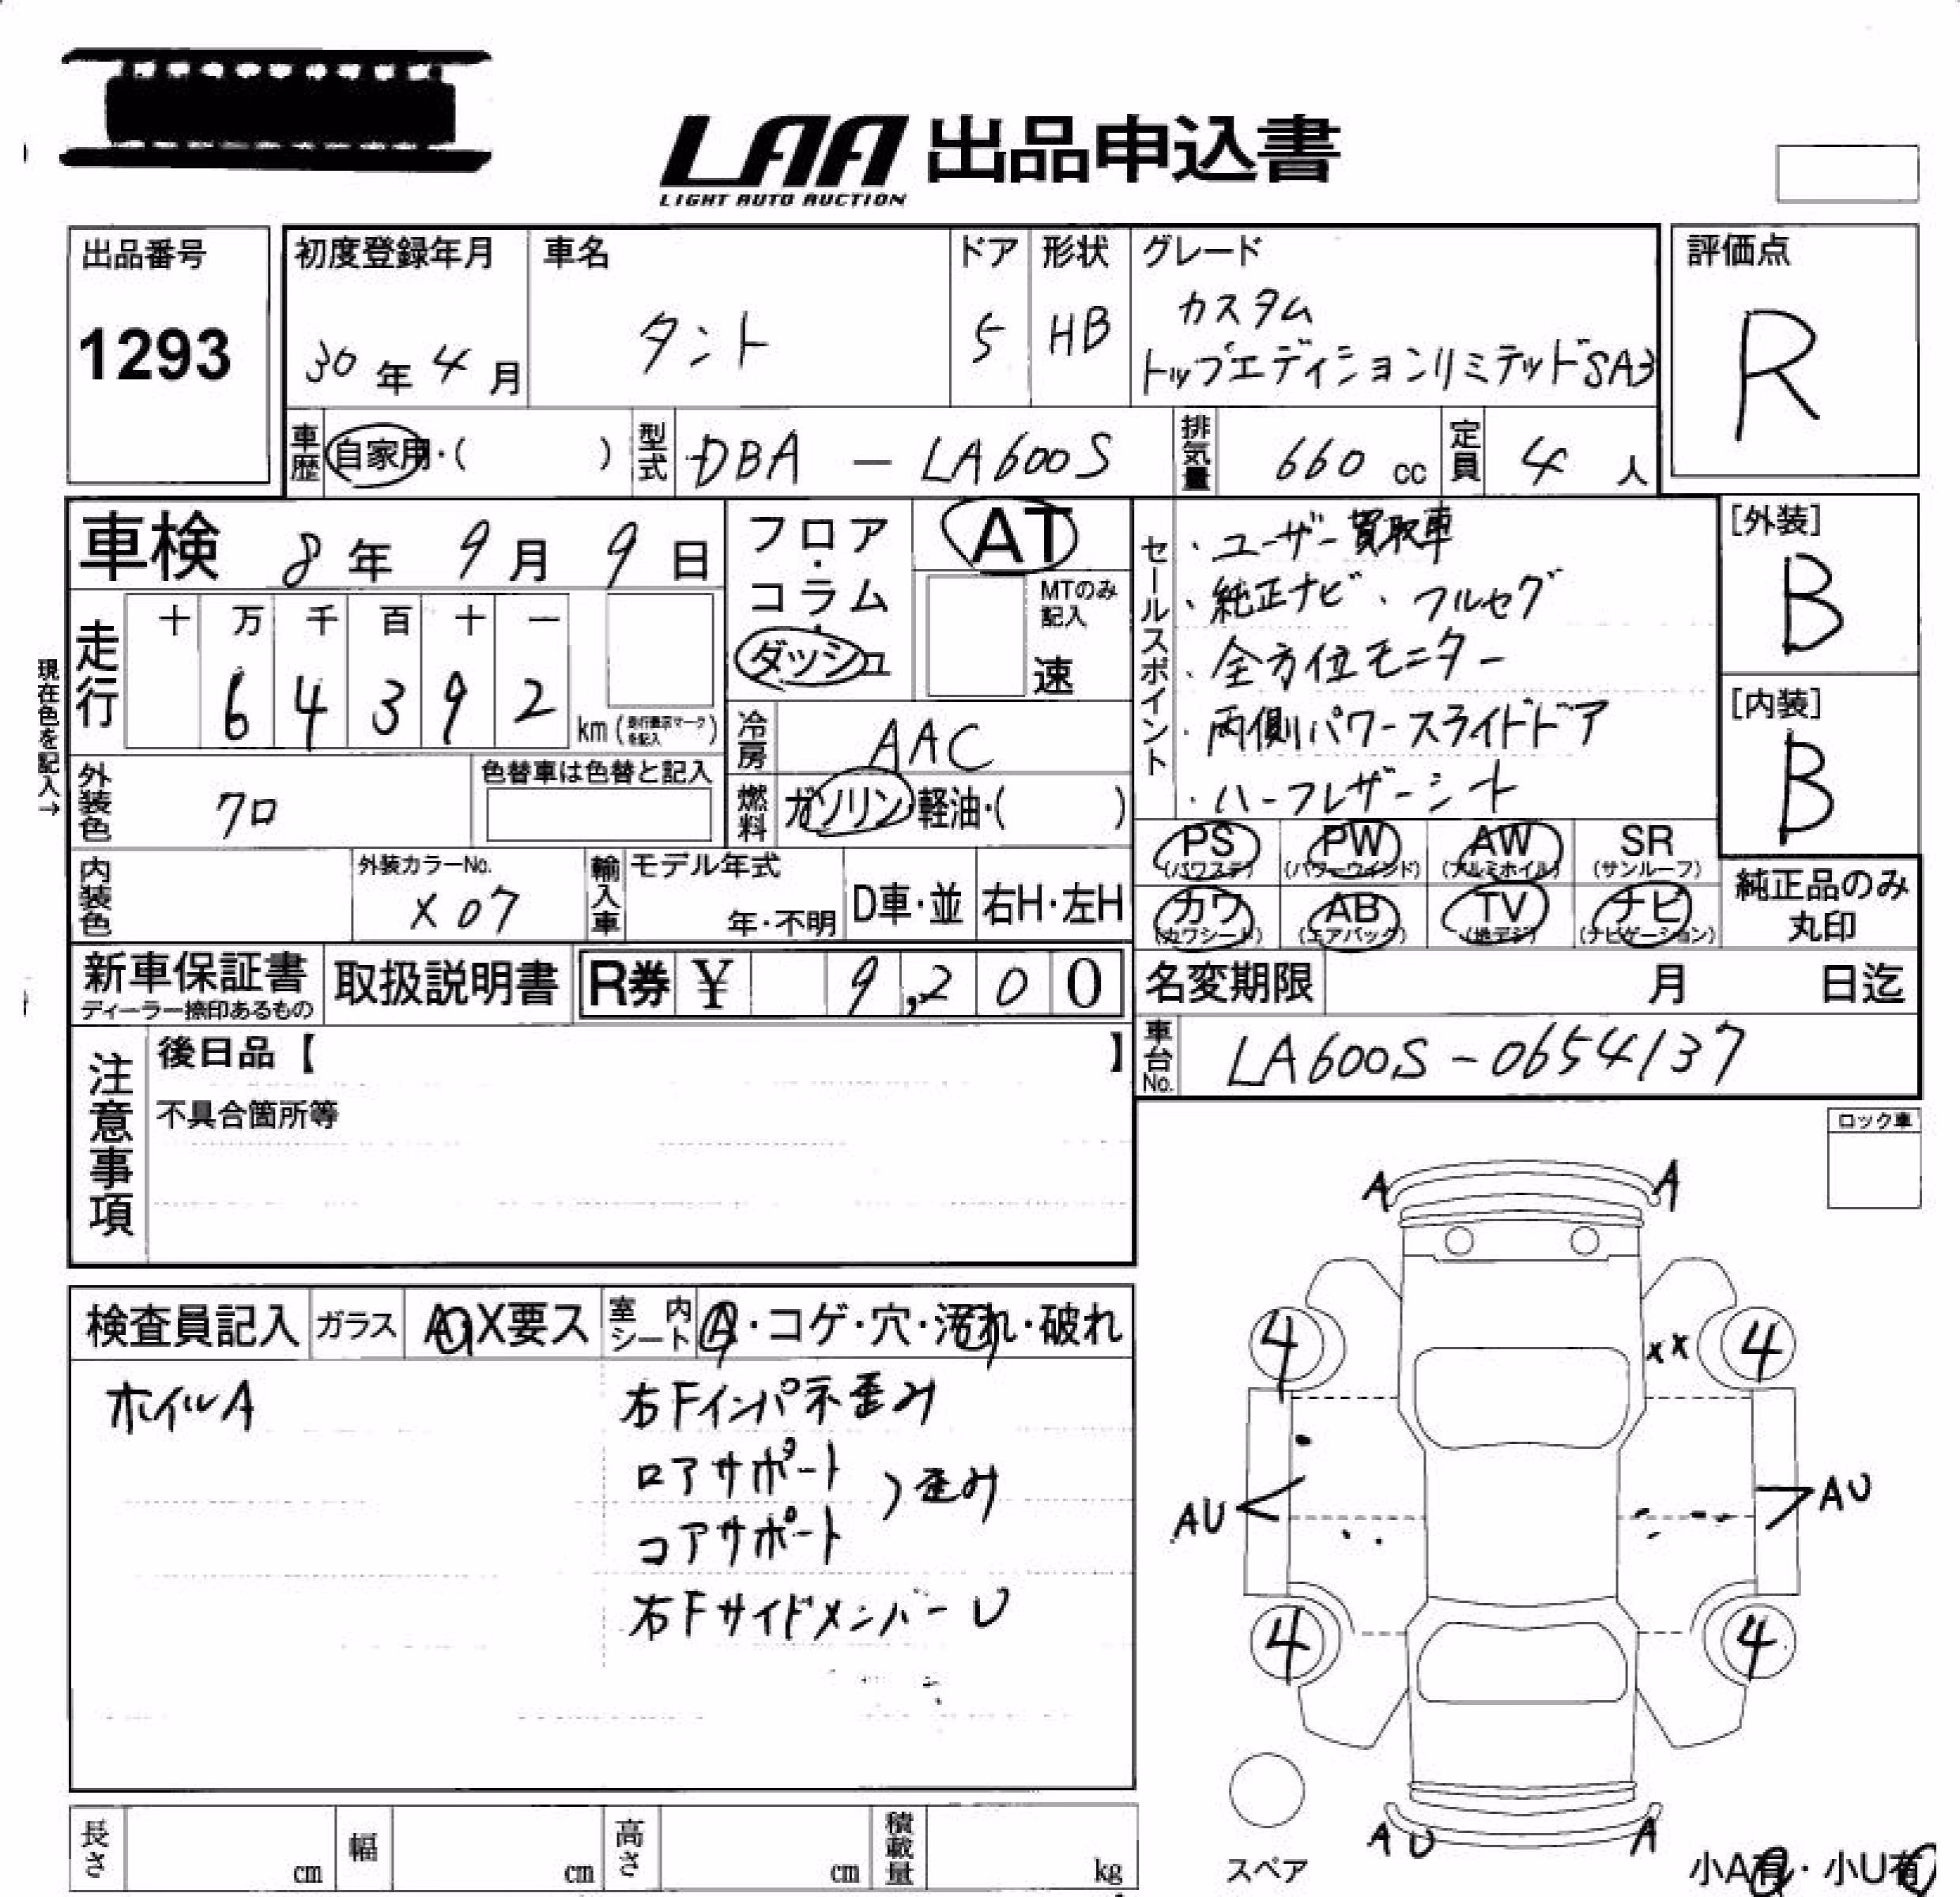 LAA 出品申込書
LIGHT AUTO AUCTION
出品番号
1293
初度登録年月
30年4月
車名
タント
ドア
5
形状
HB
グレード
カスタム
トップエディションリミテッドSA3
評価点
R
車歴 自家用・( )
型式 DBA - LA600S
排気量 660 cc
定員 4 人
車検 8年 9月 9日
フロア・コラム・ダッシュ
AT
MTのみ記入
速
現在色を記入→
走行 十 万 千 百 十 一
6 4 3 9 2 km (走行表示マークを記入)
冷房 AAC
燃料 ガソリン・軽油・( )
外装色 クロ
色替車は色替と記入
内装色
外装カラーNo.
X07
輸入車 モデル年式
年・不明
D車・並
右H・左H
セールスポイント
・ユーザー買取車
・純正ナビ、フルセグ
・全方位モニター
・両側パワースライドドア
・ハーフレザーシート
[外装]
B
[内装]
B
PS (パワステ) PW (パワーウィンド) AW (アルミホイル) SR (サンルーフ)
カワ (カワシート) AB (エアバック) TV (地デジ) ナビ (ナビゲーション)
純正品のみ丸印
新車保証書
ディーラー捺印あるもの
取扱説明書
R券 ¥ 9,200
名変期限 月 日迄
車台No. LA600S-0654137
注意事項
後日品【 】
不具合箇所等
ロック車
検査員記入 ガラス A・X要ス 室内シート A・コゲ・穴・汚れ・破れ
ホイルA
右Fインパネ歪み
ロアサポート
コアサポート
) 歪み
右Fサイドメンバー U
A A
4 xx 4
AU AU
4 4
AU A
スペア
小A有・小U有
長さ cm 幅 cm 高さ cm 積載量 kg